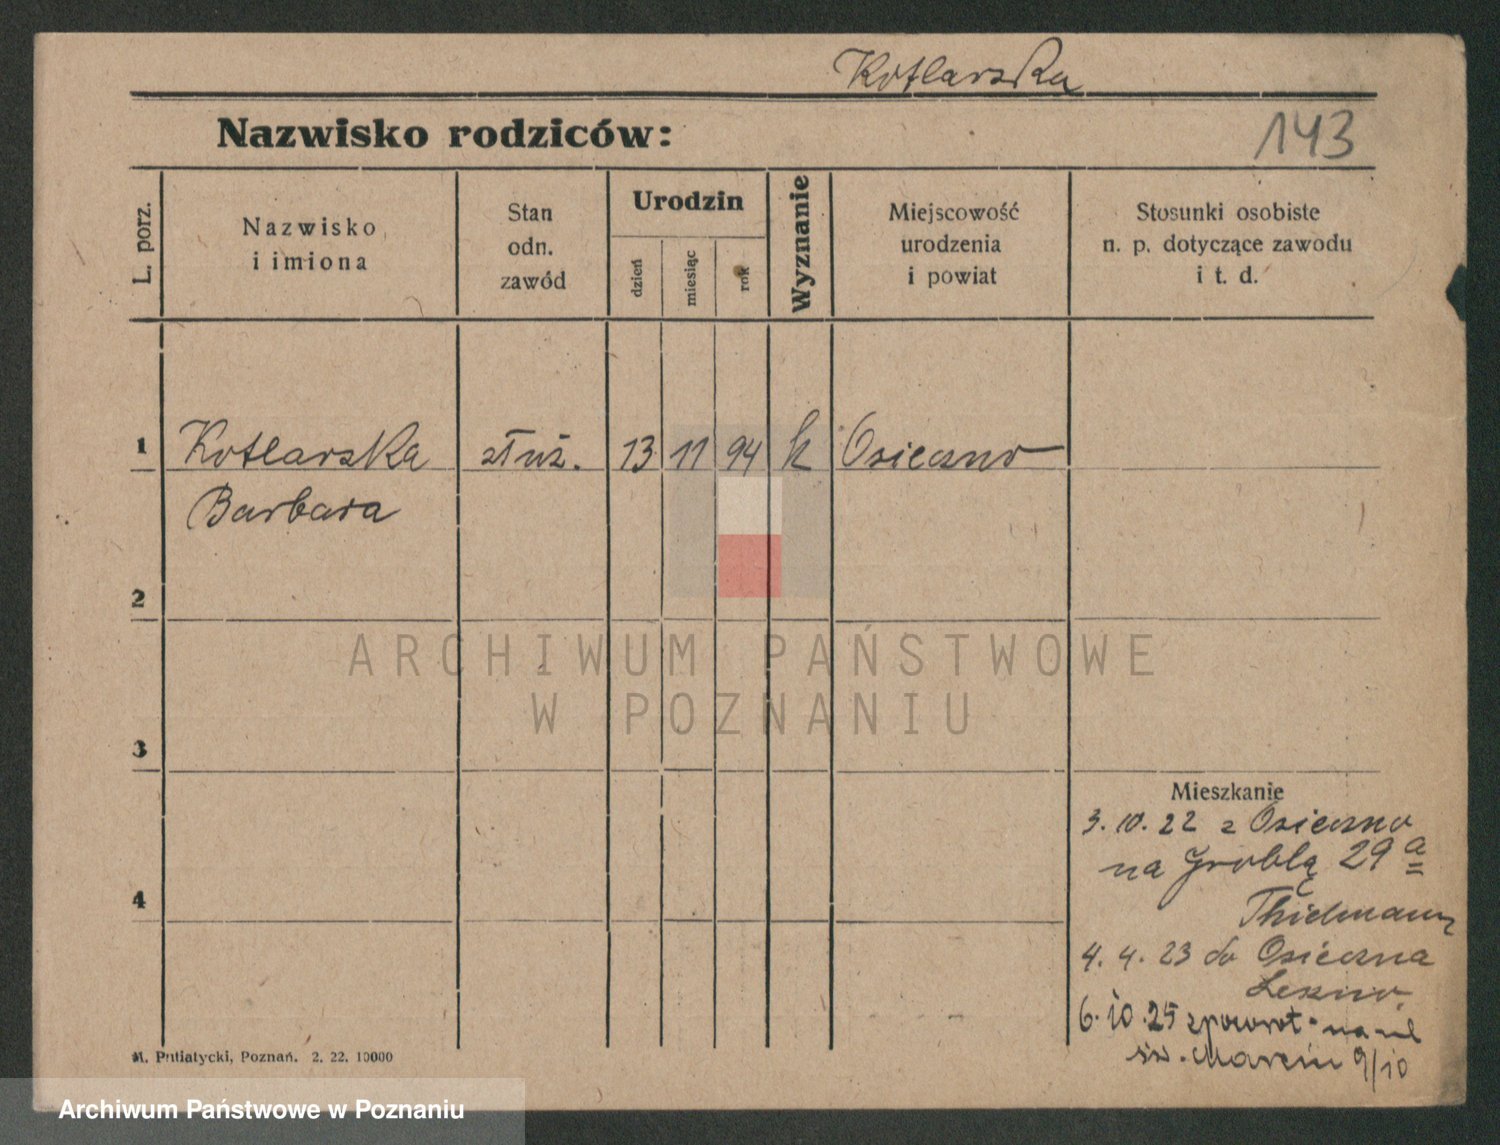 Kotlarska
Nazwisko rodziców:
143
L. porz.
Nazwisko
i imiona
Stan
odn.
zawód
Urodzin
dzień
miesiąc
rok
Wyznanie
Miejscowość
urodzenia
i powiat
Stosunki osobiste
n. p. dotyczące zawodu
i t. d.
1 Kotlarska służ. 13 11 94 k Osieczno
Barbara
2
3
4
Mieszkanie
3. 10. 22 z Osieczno
na Groblą 29 a
Thielmann
4. 4. 23 do Osieczna
Leszno.
6. 10. 25 zpowrot na ul
św. Marcin 9/10
M. Putiatycki, Poznań. 2. 22. 10000
ARCHIWUM PAŃSTWOWE
W POZNANIU
Archiwum Państwowe w Poznaniu